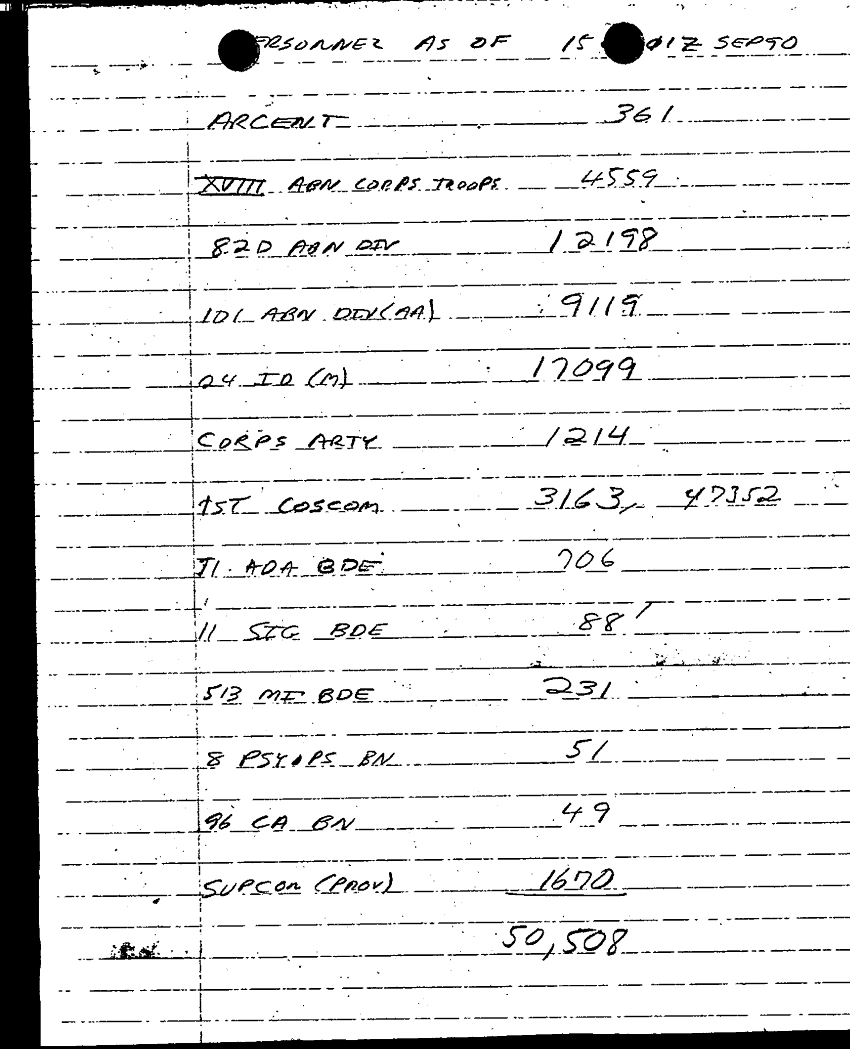 ERSONNEL AS OF 15 01Z SEP90
ARCENT 361
XVIII ABN CORPS TROOPS 4559
82D ABN DIV 12198
101 ABN DIV(AA) 9119
24 ID (M) 17099
CORPS ARTY 1214
1ST COSCOM 3163, 47352
11 ADA BDE 706
11 SIG BDE 88
513 MI BDE 231
8 PSYOPS BN 51
96 CA BN 49
SUPCOM (PROV) 1670
50,508